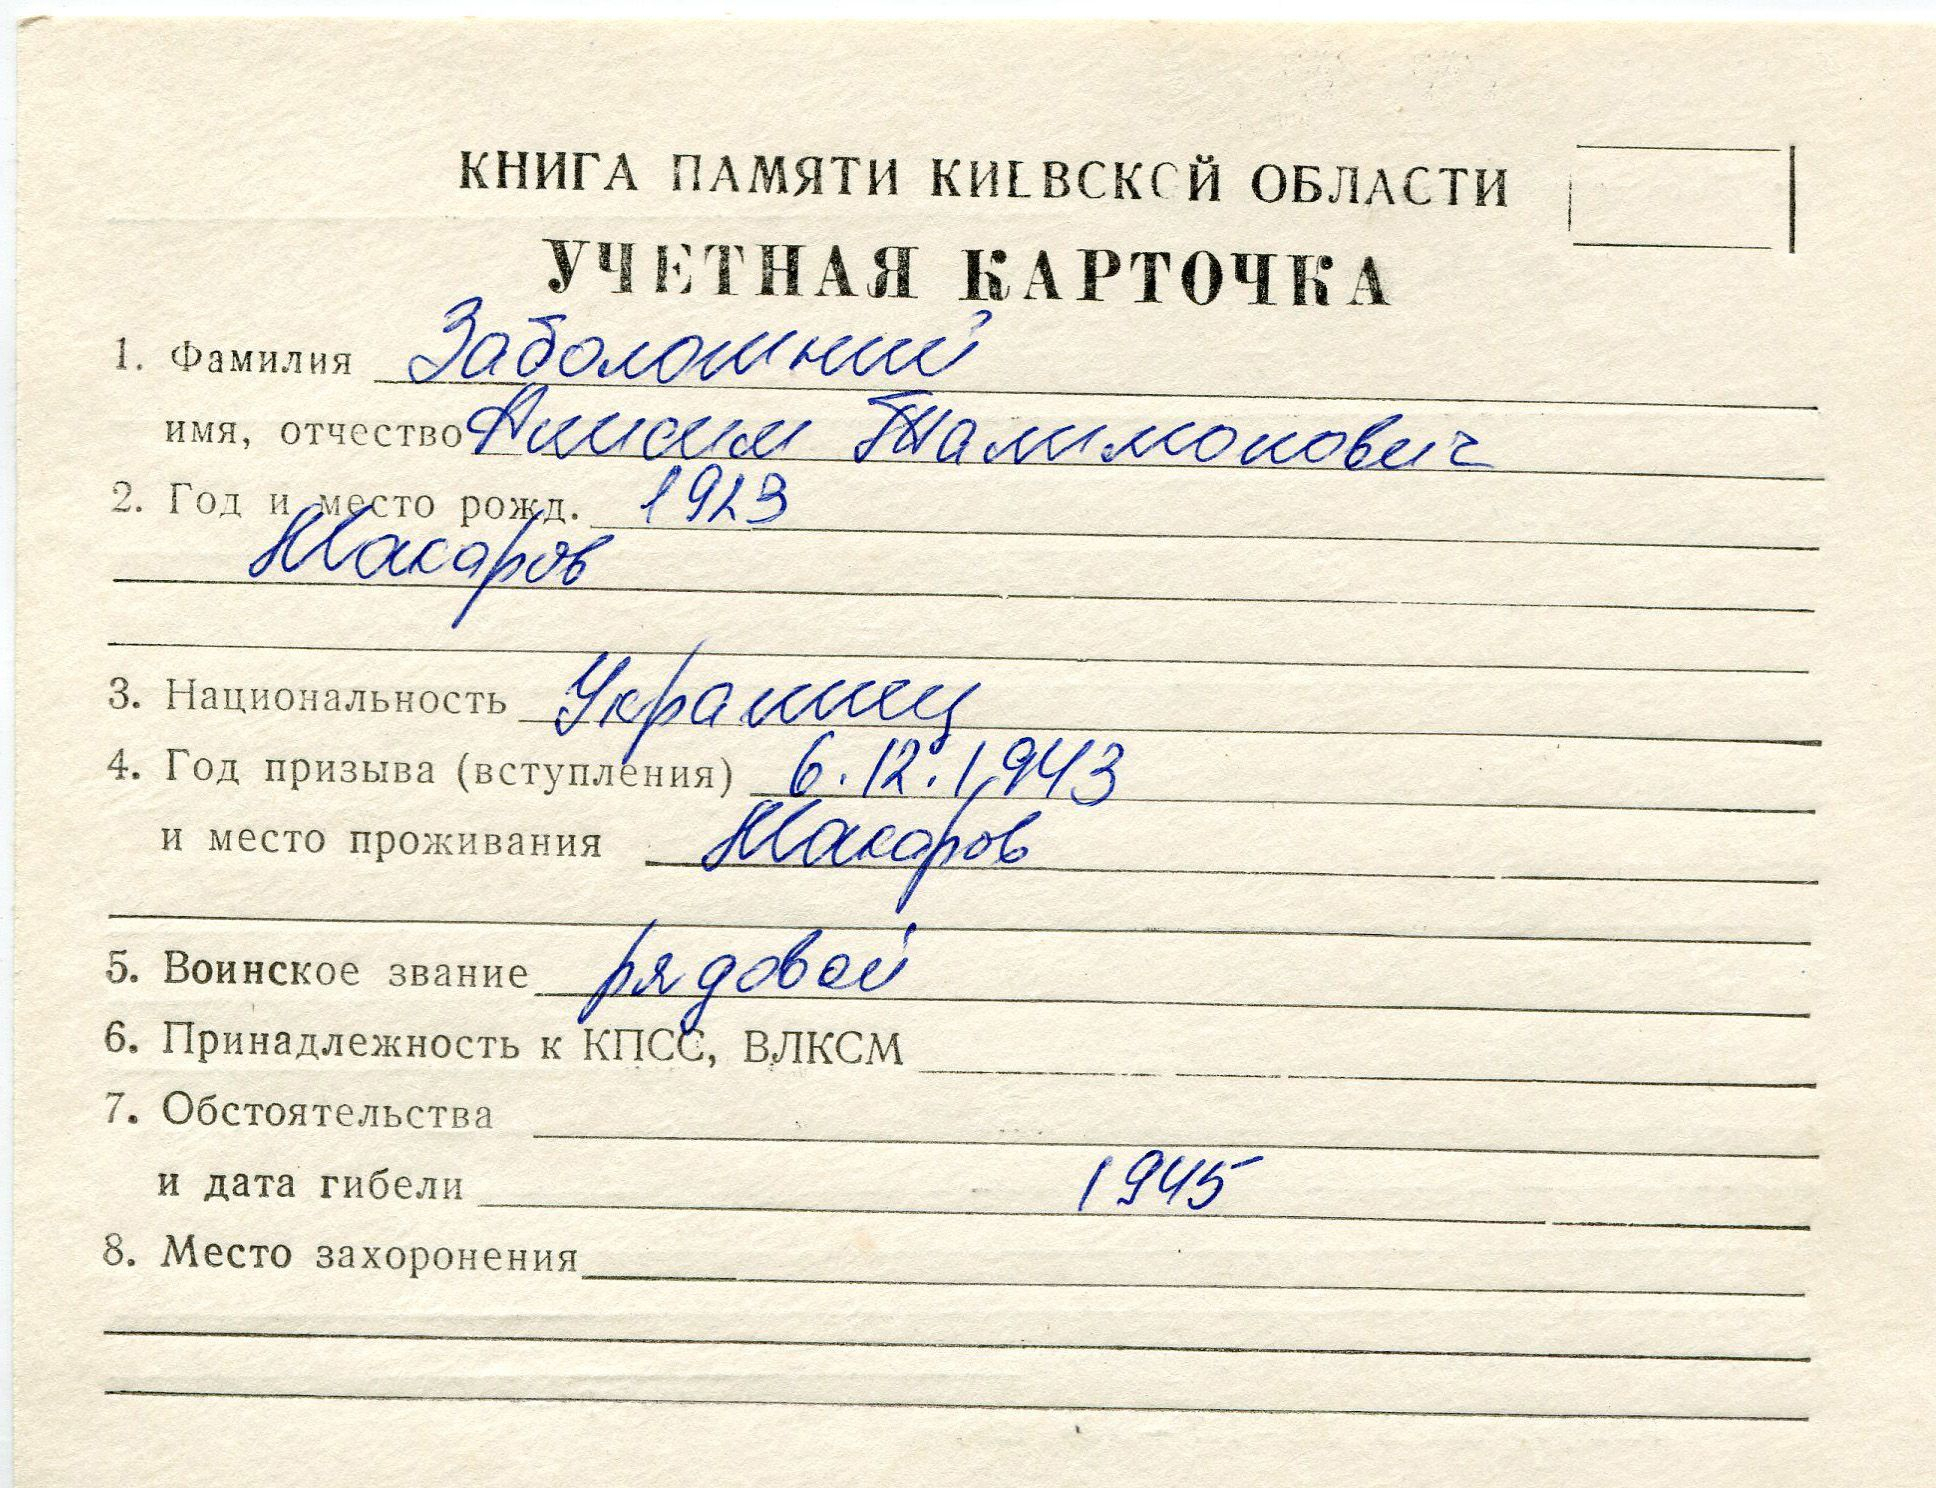 КНИГА ПАМЯТИ КИЕВСКОЙ ОБЛАСТИ
УЧЕТНАЯ КАРТОЧКА
1. Фамилия Заболотний
имя, отчество Анисим Талимонович
2. Год и место рожд. 1923
Макаров
3. Национальность Украинец
4. Год призыва (вступления) 6.12.1943
и место проживания Макаров
5. Воинское звание рядовой
6. Принадлежность к КПСС, ВЛКСМ
7. Обстоятельства
и дата гибели 1945
8. Место захоронения